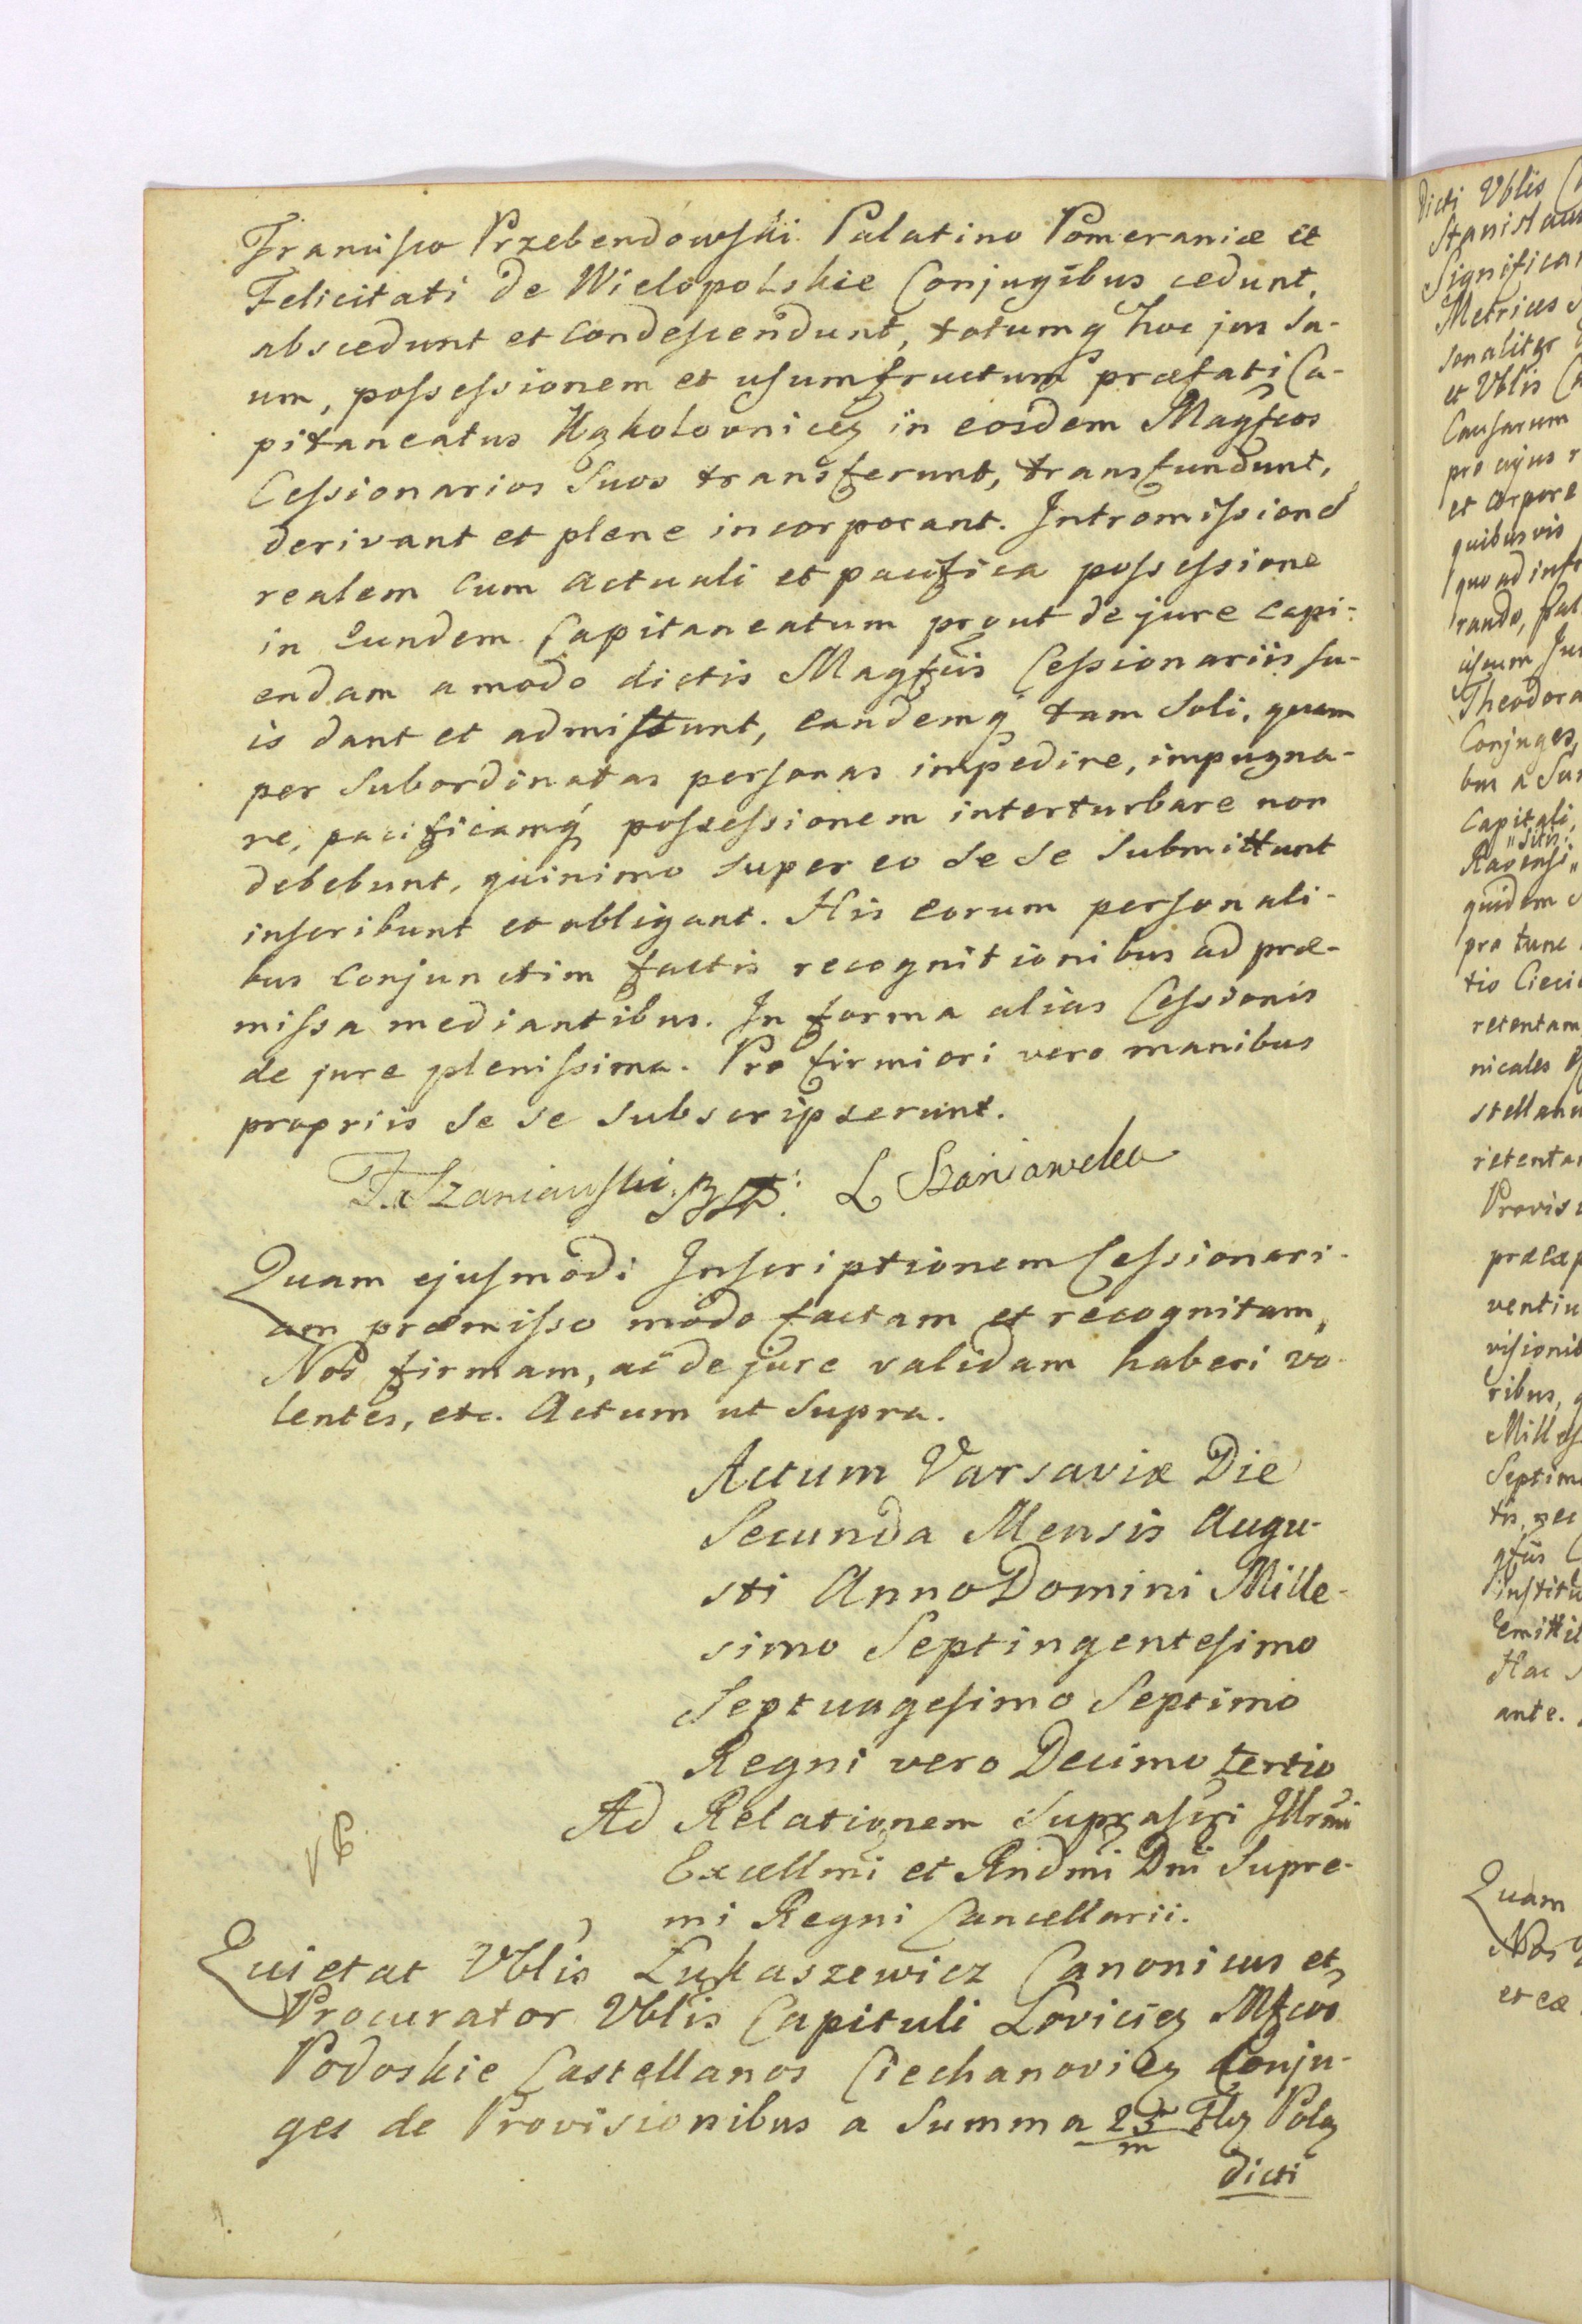 Francisco Przebendowski Palatino Pomeraniæ et
Felicitati de Wielopolskie Conjugibus cedunt,
abscedunt et condescendunt, totumq hoc jus su-
um, possessionem et usumfructum præfati Ca-
pitaneatus Kąkolovnicen in eosdem Magfcos
Cessionarios Suos transferunt, transfundunt,
derivant et plene incorporant. Intromissionē
realem cum actuali et pacifica possessione
in eundem Capitaneatum prout de jure capi-
endam a modo dictis Magfcis Cessionariis su-
is dant et admittunt, eandemq tam soli, quam
per Subordinatas personas impedire, impugna-
re, pacificamq possessionem interturbare non
debebunt, quinimo super eo se se submittunt
inscribunt et obligant. His eorum personali-
bus conjunctim factis recognitionibus ad præ-
missa mediantibus. In forma alias Cessionis
de jure plenissima. Pro firmiori vero manibus
propriis se se subscripserunt.
F. Szaniawski L Szaniawska
Quam ejusmodi Inscriptionem Cessionari-
am præmisso modo factam et recognitam,
Nos firmam, ac de jure validam haberi vo-
lentes, etc. Actum ut supra.
Actum Varsaviæ Die
Secunda Mensis Augu-
sti Anno Domini Mille-
simo Septingentesimo
Septuagesimo Septimo
Regni vero Decimo tertio
Ad Relationem Suprascri Illrmi
Excellmi et Rndmi Dni Supre-
mi Regni Cancellarii.
Quietat Vblis Łukaszewicz Canonicus et
Procurator Vblis Capituli Lovicien Mfcos
Podoskie Castellanos Ciechanovien Conju-
ges de Provisionibus a Summa 25/m Flen Polen
dicti
dicti Vblis
Significa
Metrices
sonaliter
et Vblis
Causarum
pro cujus
et corpore
quibusvis
quo ad
Theodora
Conjuges
Capitali,
quidem
pro tunc
retentam
nicales
præcep
ribus,
ante.
Quam
Nos